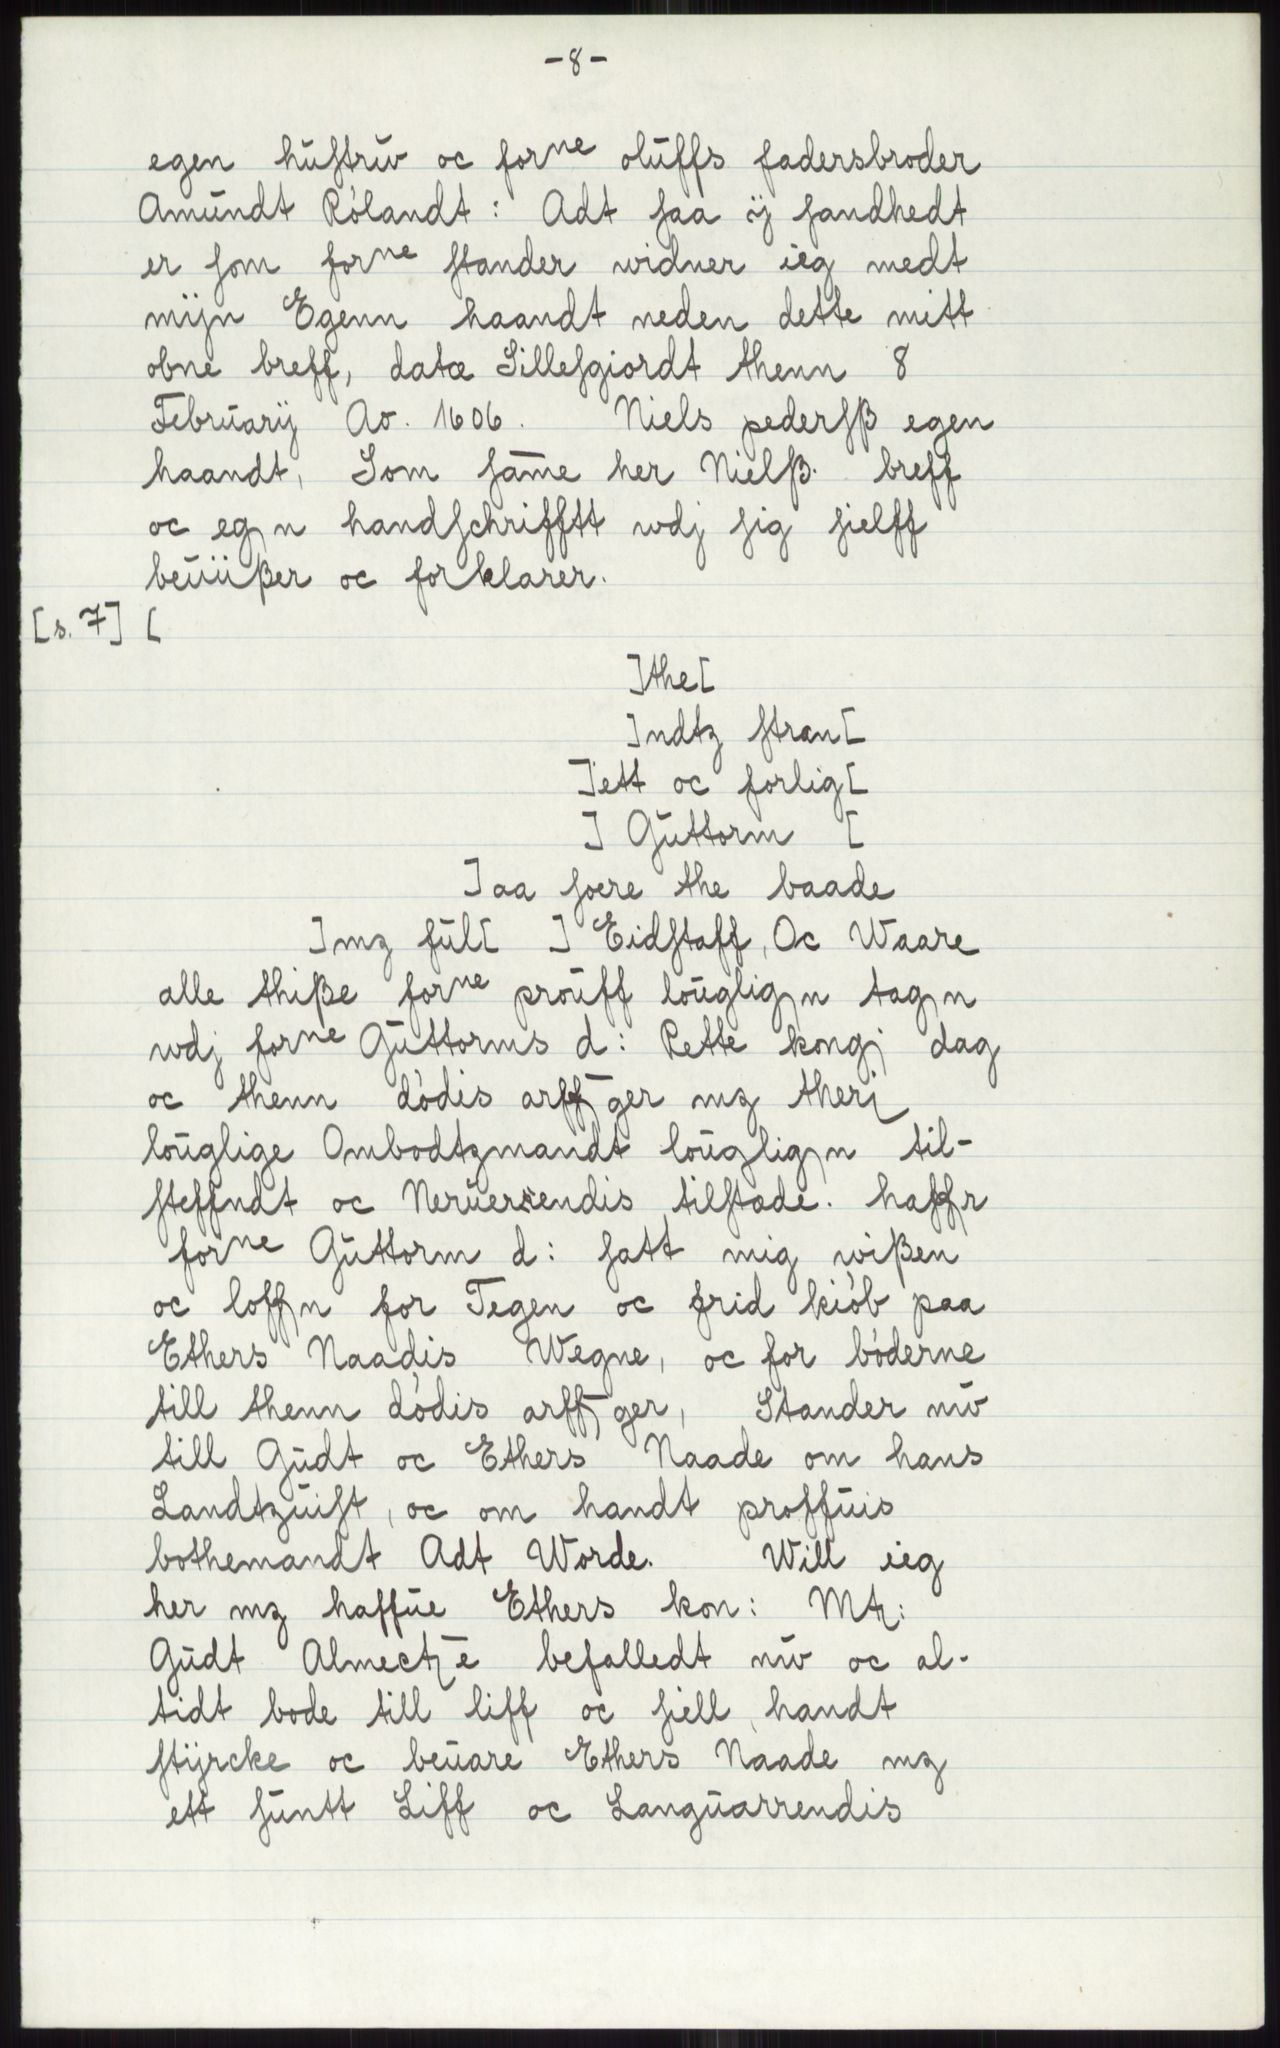 -8-
egen hūſtrūv oc forne olūffs fadersbroder
Amūndt Rólandt: Adt ſaa ÿ ſandhedt
er ſom forne ſtander widner ieg medt
mijn Egenn haandt neden dette mitt
obne breff, datæ Sillesgiordt thenn 8
Februarij Ao. 1606. Niels pederſß egen
haandt, Som ſāme her Nielß. breff
oc egn handſchrifftt wdj ſig ſielff
beūüßer oc forklarer.
[s. 7] [
]the[
]ndtz ſtran[
]ett oc forlig[
] Gūttorm [
]aa ſoere the baade
]mz fūl[ ] Eidſtaff, Oc Waare
alle thiße forne proūff loūglign tagn
wdj forne Gūttorms d: Rette kongj dag
oc thenn dódis arffger mz therj
loūglige Ombodtzmandt loūglign til-
ſteffndt oc Nerūerendis tilſtæde. haffr
forne Gūttorm d: ſatt mig wißen
oc loffn for Tegen oc frid kiób paa
Ethers Naadis Wegne, oc for bóderne
till thenn dódis arffger, Stander nūv
till Gūdt oc Ethers Naade om hans
Landtzūiſt, oc om handt proffūis
bothemandt Adt Worde. Will ieg
her mz haffūe Ethers kon: Mtz:
Gūdt Almectze befalledt nūv oc al-
tidt bode till liff oc ſiell, handt
ſtÿrcke oc beūare Ethers Naade mz
ett ſūntt Liff oc Langūarrendis